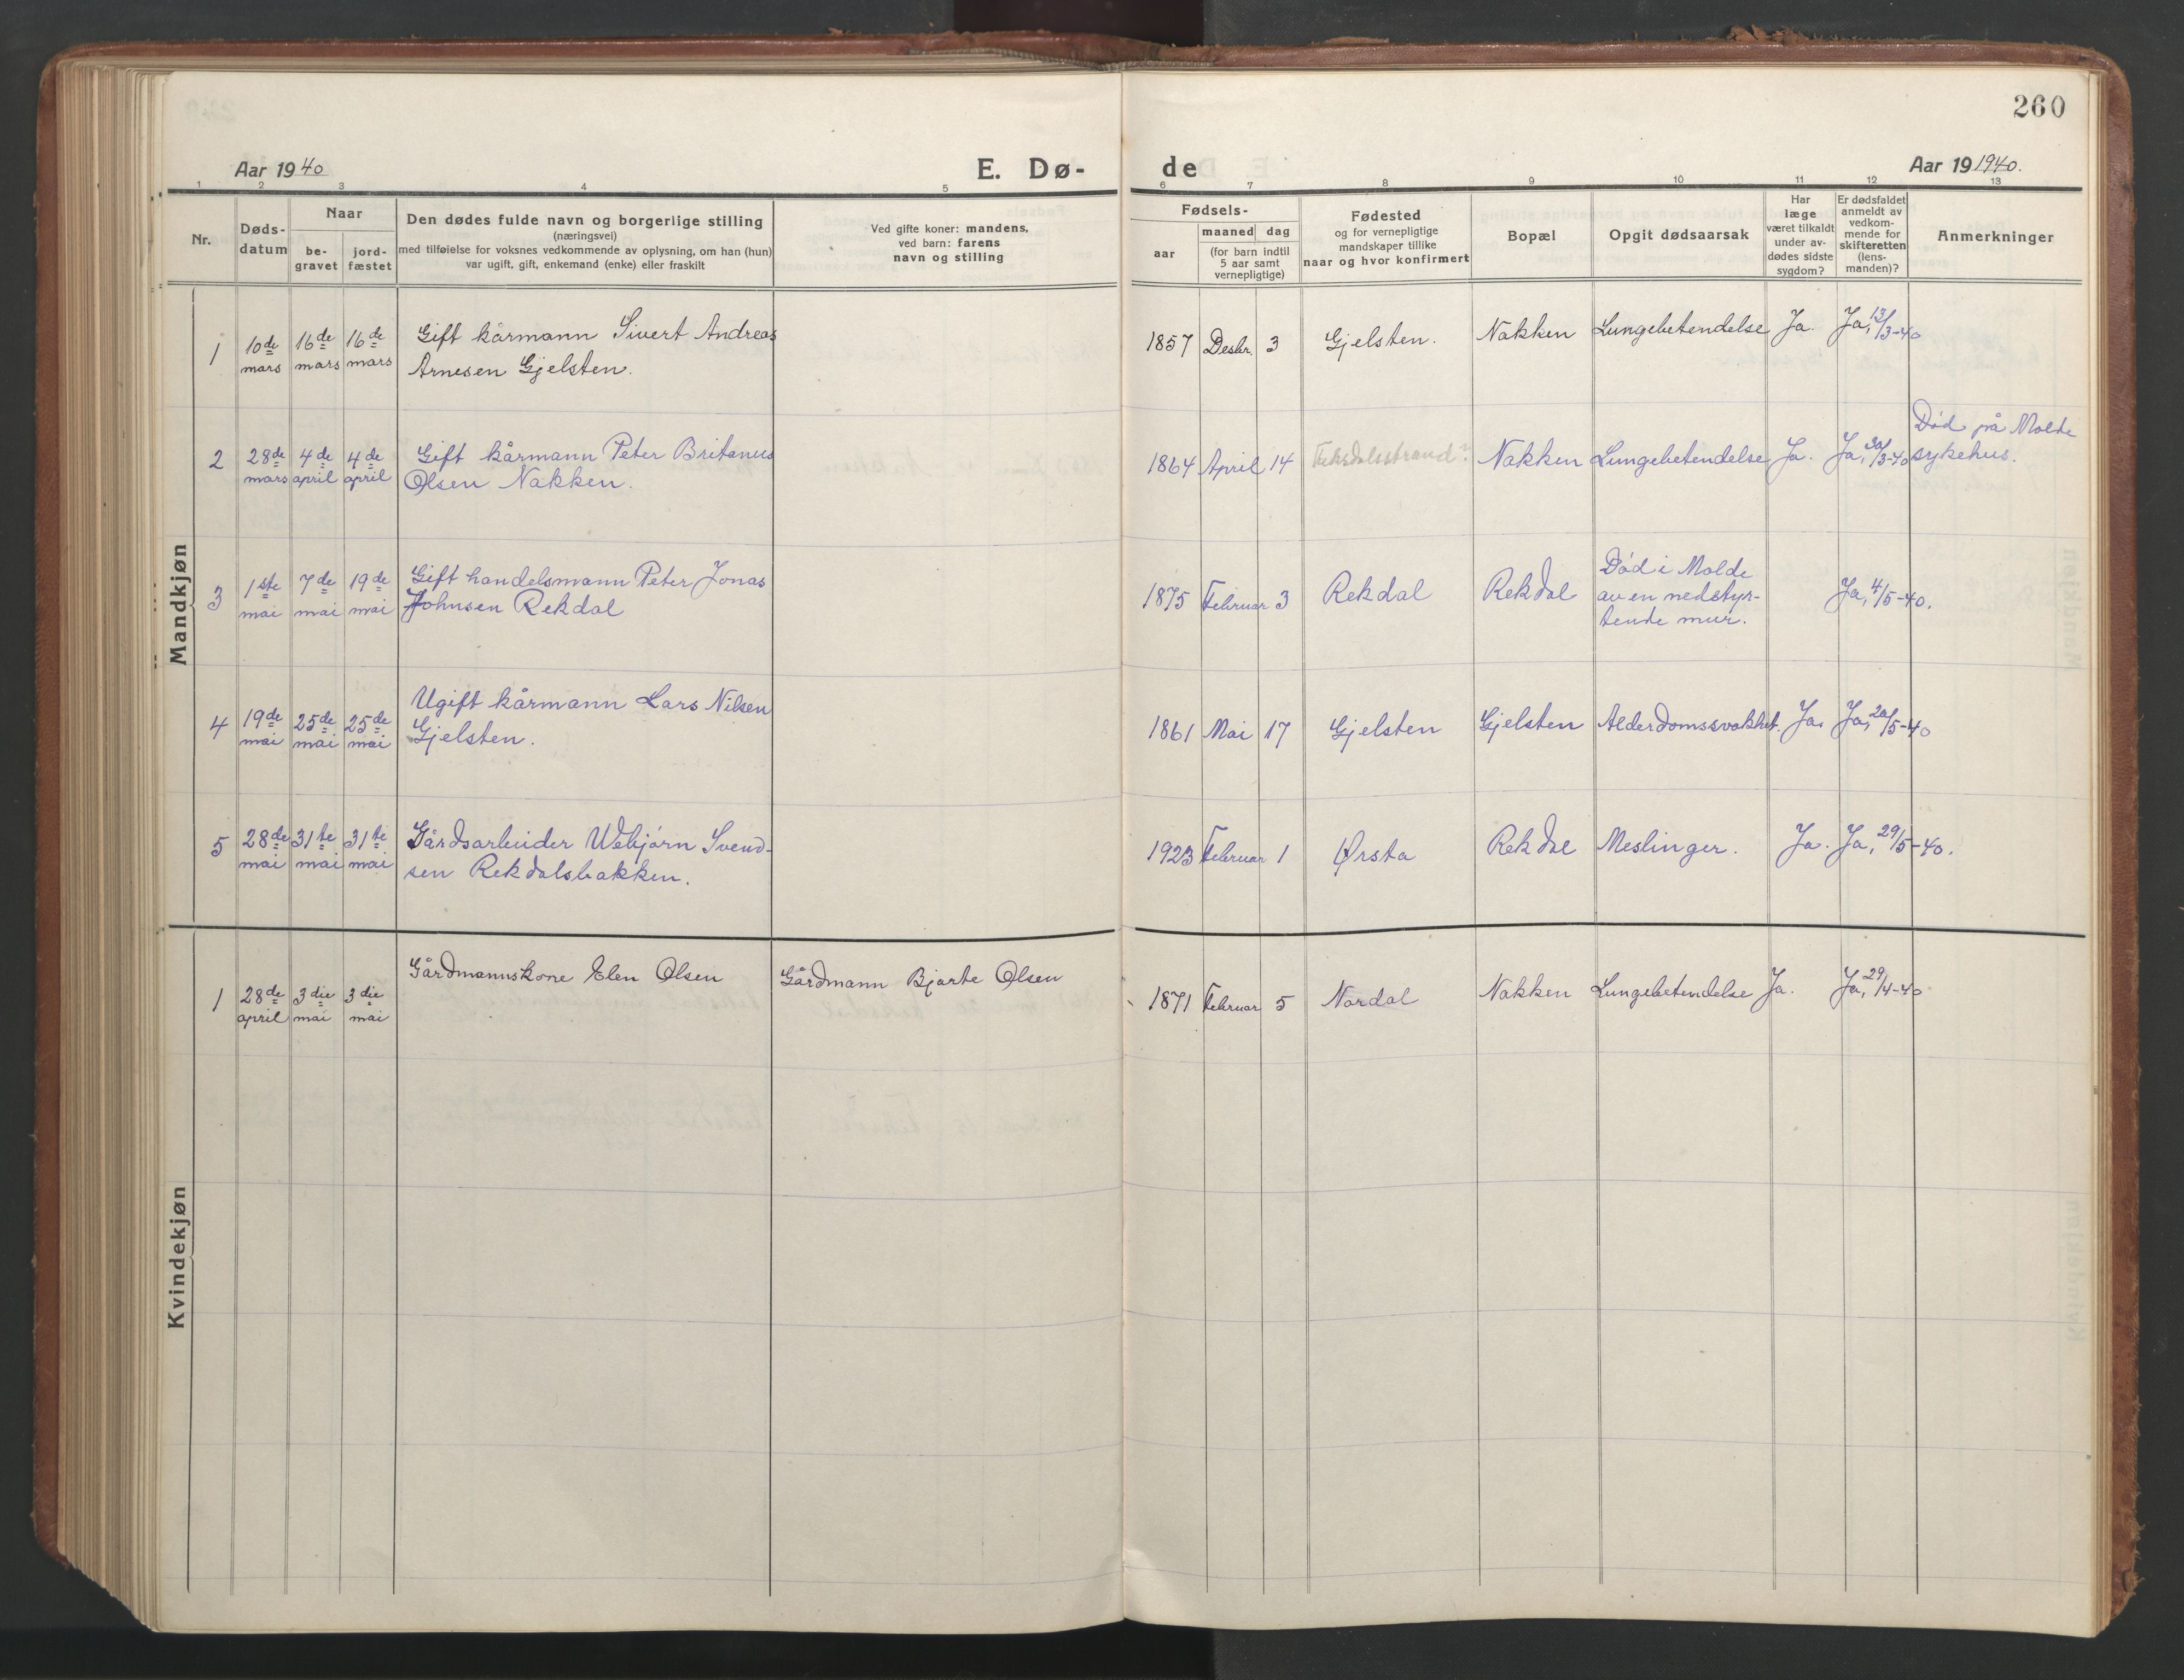 260
Aar 1940
E. Dø-
de
Aar 19 1940.
1 2 3 4 5 6 7 8 9 10 11 12 13
Nr.
Døds-
datum
Naar
be-
gravet
jord-
fæstet
Den dødes fulde navn og borgerlige stilling
(næringsvei)
med tilføielse for voksnes vedkommende av oplysning, om han (hun)
var ugift, gift, enkemand (enke) eller fraskilt
Ved gifte koner: mandens,
ved barn: farens
navn og stilling
Fødsels-
aar
maaned dag
(for barn indtil
5 aar samt
vernepligtige)
Fødested
og for vernepligtige
mandskaper tillike
naar og hvor konfirmert
Bopæl
Opgit dødsaarsak
Har
læge
været tilkaldt
under av-
dødes sidste
sygdom?
Er dødsfaldet
anmeldt av
vedkom-
mende for
skifteretten
(lens-
manden)?
Anmerkninger
Mandkjøn
1 10de mars 16de mars 16de mars
Gift kårmann Sivert Andreas
Arnesen Gjelsten.
1857 Desbr. 3 Gjelsten. Nakken Lungebetendelse Ja. Ja, 13/3-40
2 28de mars 4de april 4de april
Gift kårmann Peter Britanus
Olsen Nakken.
1864 April 14 Fiksdalsstrand? Nakken Lungebetendelse Ja. Ja, 30/3-40
Død på Molde
sykehus.
3 1ste mai 7de mai 19de mai
Gift handelsmann Peter Jonas
Johnsen Rekdal
1875 Februar 3 Rekdal Rekdal
Død i Molde
av en nedstyr-
tende mur.
Ja, 4/5-40.
4 19de mai 25de mai 25de mai
Ugift kårmann Lars Nilsen
Gjelsten.
1861 Mai 17 Gjelsten Gjelsten Alderdomssvakhet. Ja. Ja, 20/5-40
5 28de mai 31te mai 31te mai
Gårdsarbeider Webjørn Svend-
sen Rekdalsbakken.
1923 Februar 1 Ørsta Rekdal Meslinger. Ja. Ja, 29/5-40.
Kvindekjøn
1 28de april 3die mai 3die mai
Gårdmannskone Elen Olsen
Gårdmann Bjarte Olsen
1871 Februar 5 Nordal Nakken Lungebetendelse Ja. Ja, 29/4-40